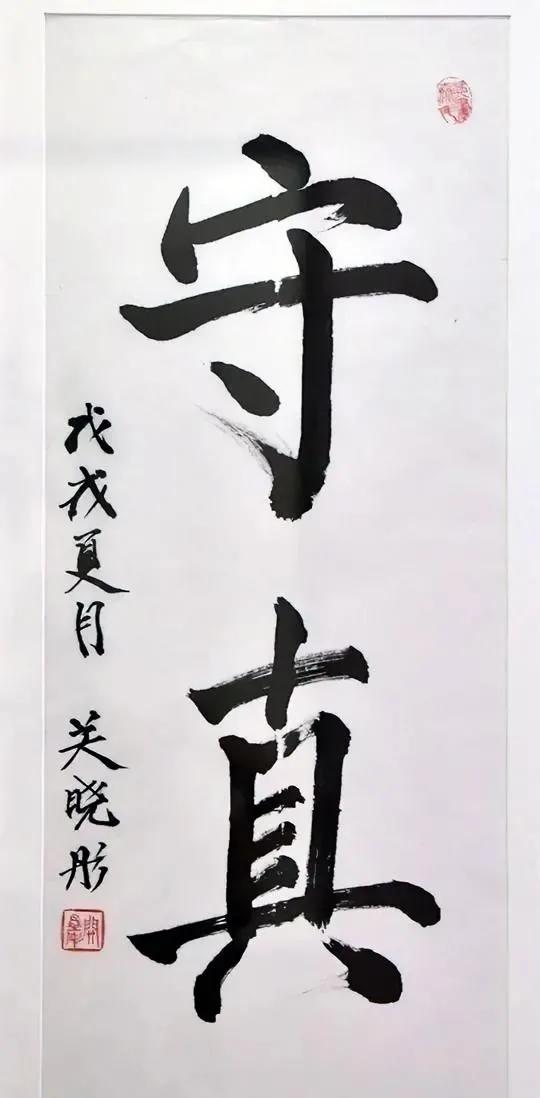 守真
戊戌夏月 关晓彤